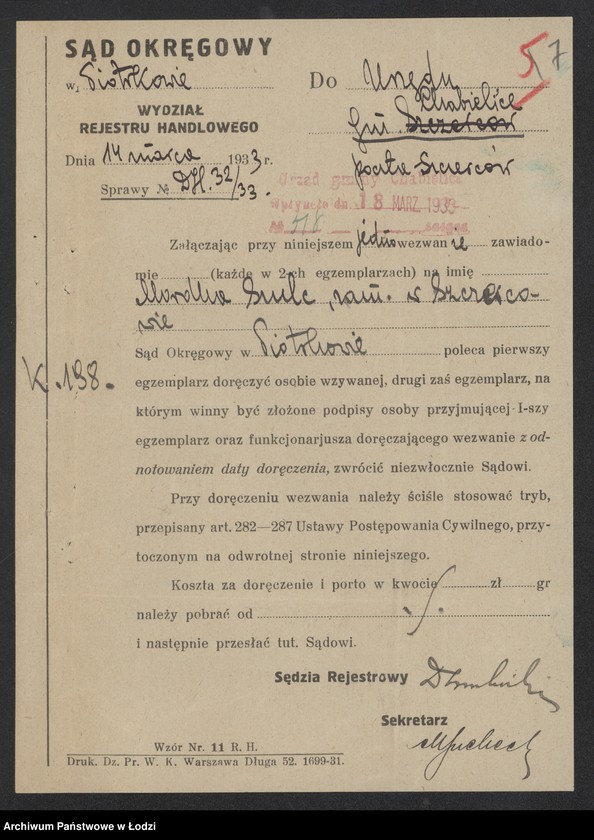 SĄD OKRĘGOWY
w Piotrkowie
WYDZIAŁ
REJESTRU HANDLOWEGO
Dnia 14 marca 1933 r.
Sprawy № DH. 32/33.
57
Do Urzędu
Chabielice
Gm. Szczerców
poczta Szczerców
Urząd gminy Chabielice
Wpłynęło da. 18 MARZ 1933
№ 518
Załączając przy niniejszem jedno wezwanie zawiado-
mie (każde w 2-ch egzemplarzach) na imię
Mordka Szulc, zam. w Szczerco-
wie
Sąd Okręgowy w Piotrkowie poleca pierwszy
K. 198.
egzemplarz doręczyć osobie wzywanej, drugi zaś egzemplarz, na
którym winny być złożone podpisy osoby przyjmującej I-szy
egzemplarz oraz funkcjonarjusza doręczającego wezwanie z od-
notowaniem daty doręczenia, zwrócić niezwłocznie Sądowi.
Przy doręczeniu wezwania należy ściśle stosować tryb,
przepisany art. 282—287 Ustawy Postępowania Cywilnego, przy-
toczonym na odwrotnej stronie niniejszego.
Koszta za doręczenie i porto w kwocie zł gr
należy pobrać od
i następnie przesłać tut. Sądowi.
Sędzia Rejestrowy
Sekretarz
Wzór Nr. 11 R. H.
Druk. Dz. Pr. W. K. Warszawa Długa 52. 1699-31.
Archiwum Państwowe w Łodzi